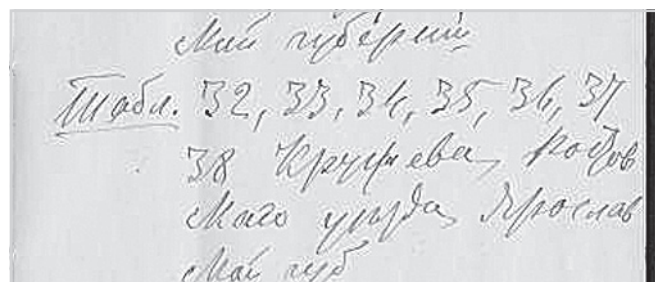 ской губернии
Табл. 32, 33, 34, 35, 36, 37
38 Кружева, Ростов
скаго уезда, Ярослав
ской губ